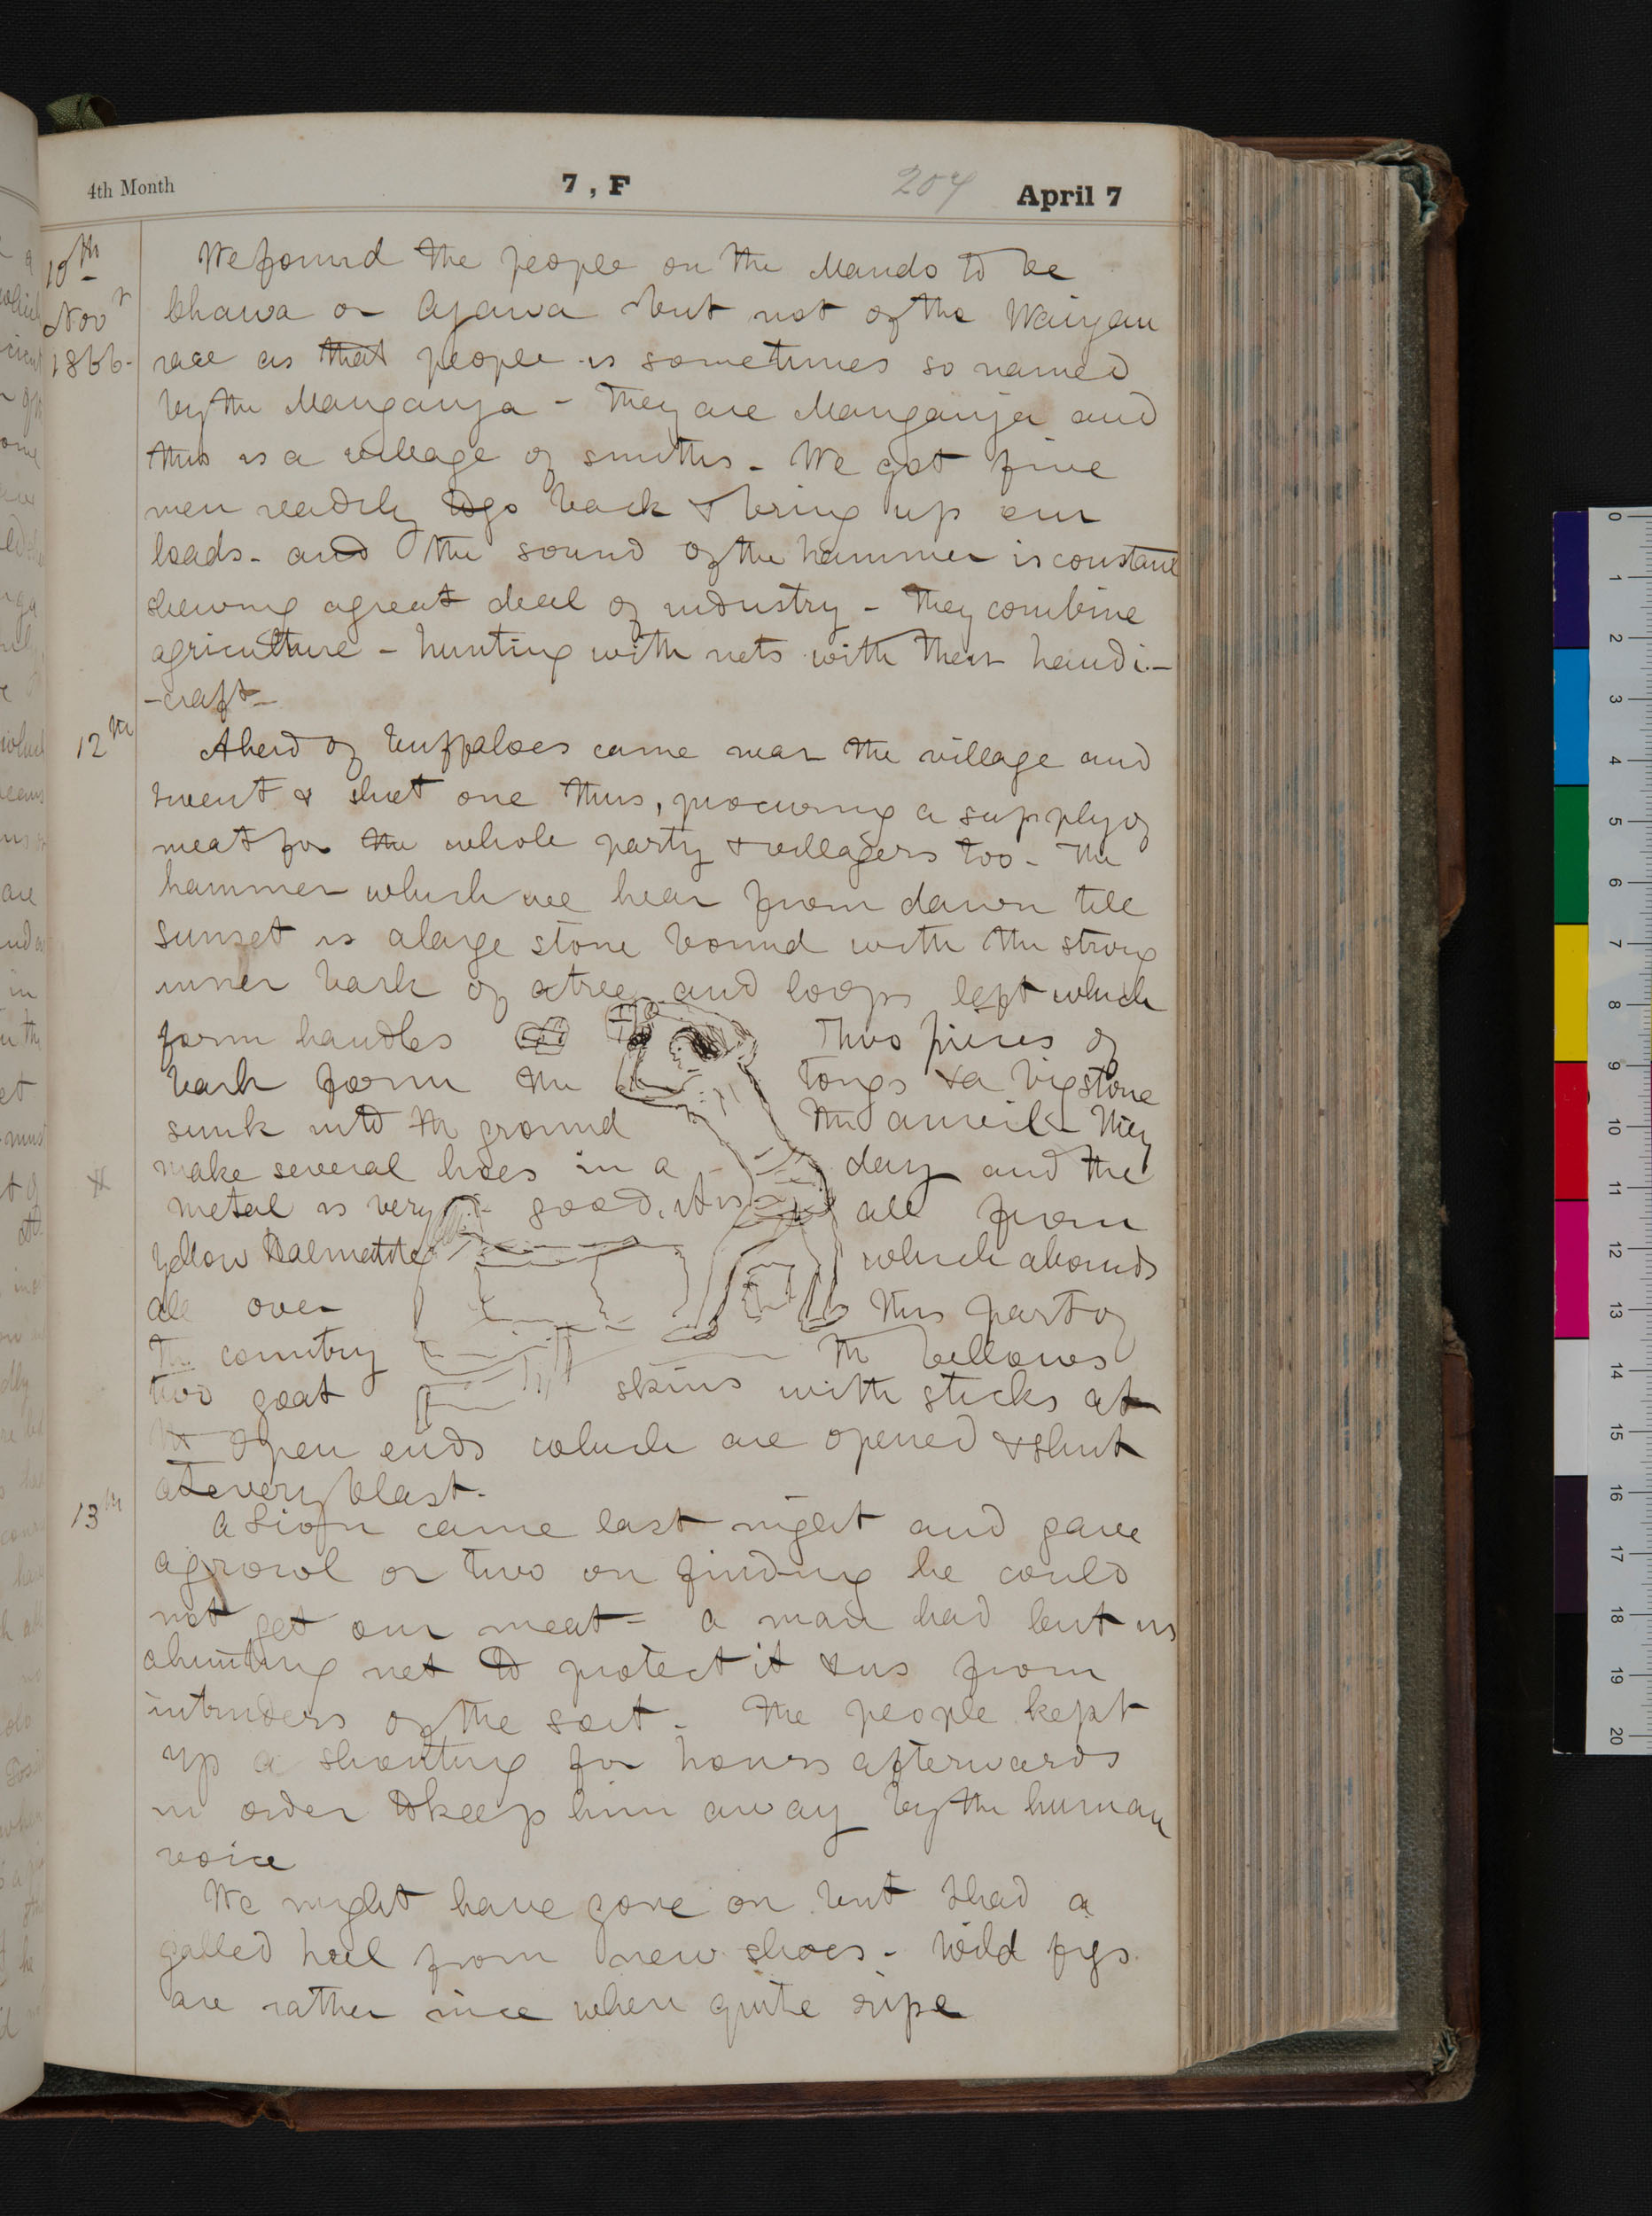 4th Month 7, F 204 April 7
10th Novr 1866-
We found the people on the Mando to be
Chawa or Ajawa but not of the Waiyau
race as that people is sometimes so named
by the Manganja - They are Manganja and
this is a village of smiths - We got five
men readily to go back & bring up our
loads - and the sound of the hammer is constant
shewing a great deal of industry - They combine
agriculture - hunting with nets with their handi-
-craft -
12th
A herd of buffaloes came near the village and
I went & shot one thus, procuring a supply of
meat for the whole party & villagers too - The
hammer which we hear from dawn till
sunset is a large stone bound with the strong
inner bark of a tree and loops left which
form handles Two pieces of
bark form the tongs & a big stone
sunk into the ground the anvil - They
make several hoes in a day and the
metal is very good, it is all from
yellow Haematite which abounds
all over this part of
the country the bellows
two goat skins with sticks at
the open ends which are opened & shut
at every blast -
13th
A Lion came last night and gave
a growl or two on finding he could
not get our meat = a man had lent us
a hunting net to protect it & us from
intruders of the sort - The people kept
up a shouting for hours afterwards
in order to keep him away by the human
voice
We might have gone on but I had a
galled heel from new shoes - Wild figs
are rather nice when quite ripe
0
1
2
3
4
5
6
7
8
9
10
11
12
13
14
15
16
17
18
19
20